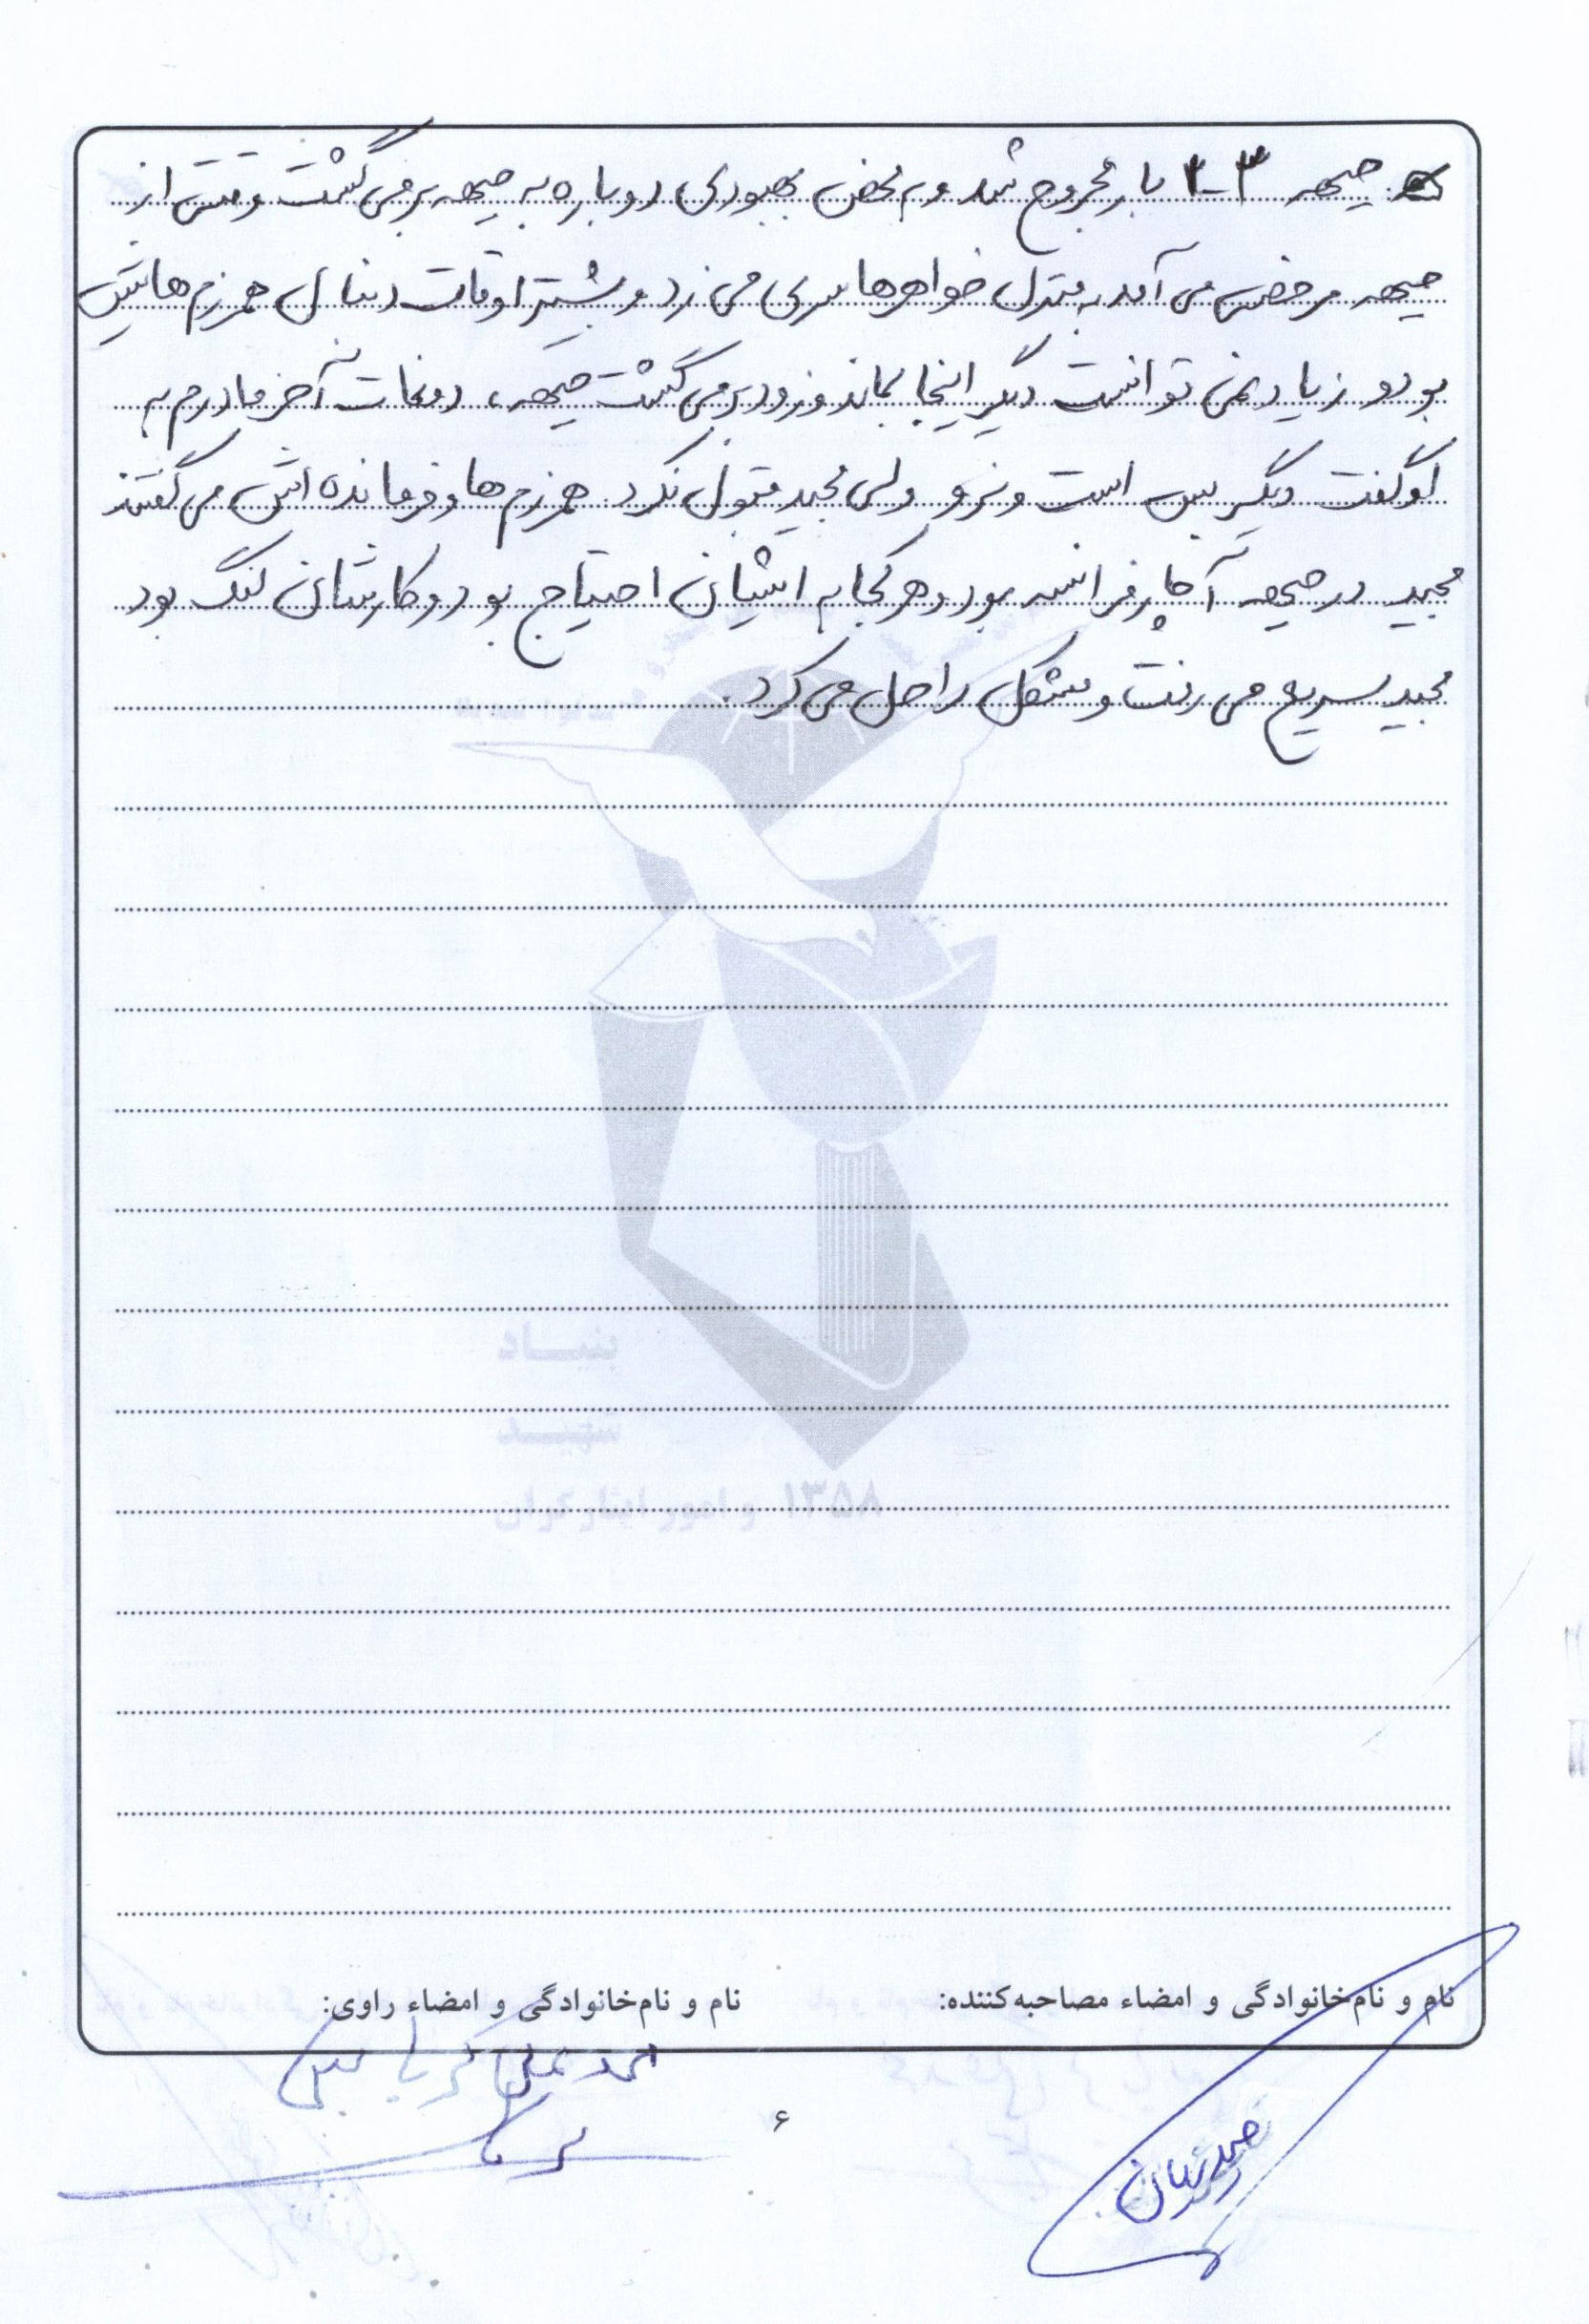 جبهه ۳-۲ بار مجروح شد و به محض بهبودی دوباره به جبهه برمی گشت وقتی از
جبهه مرخصی می آمد به منزل خواهرها سری می زد و بیشتر اوقات دنبال همرزم هایش
بود و زیاد نمی توانست دیگر اینجا بماند و زود برمی گشت جبهه، دفعات آخر مادرم به
او گفت دیگر بس است و نرو ولی مجید قبول نکرد. همرزم ها و فرمانده اش می گفتند
مجید در جبهه آچار فرانسه بود و هر کجا به ایشان احتیاج بود و کارشان لنگ بود
مجید سریع می رفت و مشکل را حل می کرد.
بنیاد
شهید
۱۳۵۸ و امور ایثارگران
نام و نام‌خانوادگی و امضاء مصاحبه‌کننده:
نام و نام‌خانوادگی و امضاء راوی:
۶